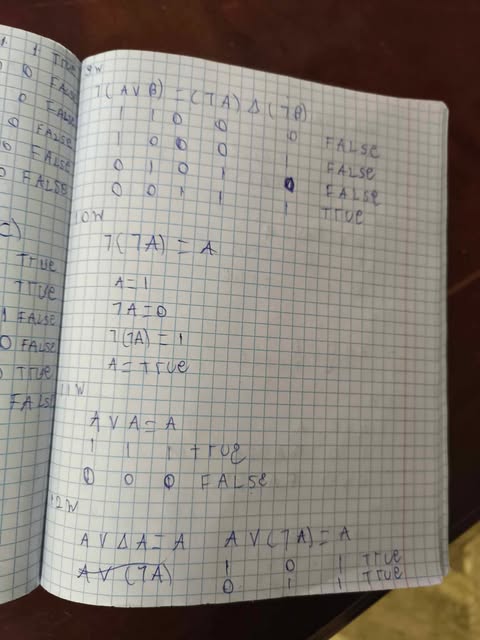 1 1 True
0 0 FALSE
0 FALSE
0 FALSE
0 FALSE
0 FALSE
C)
True
True
1 FALSE
0 FALSE
0 True
FALSE
9W
7(A V B) = (7A) Δ (7B)
1 1 0 0 0 FALSE
1 0 0 0 1 FALSE
0 1 0 1 0 FALSE
0 0 1 1 1 True
10W
7(7A) = A
A=1
7A=0
7(7A) = 1
A=True
11W
A V A = A
1 1 1 True
0 0 0 FALSE
12W
A V Δ A = A A V (7A) = A
A V (7A) 1 0 1 True
0 1 1 True